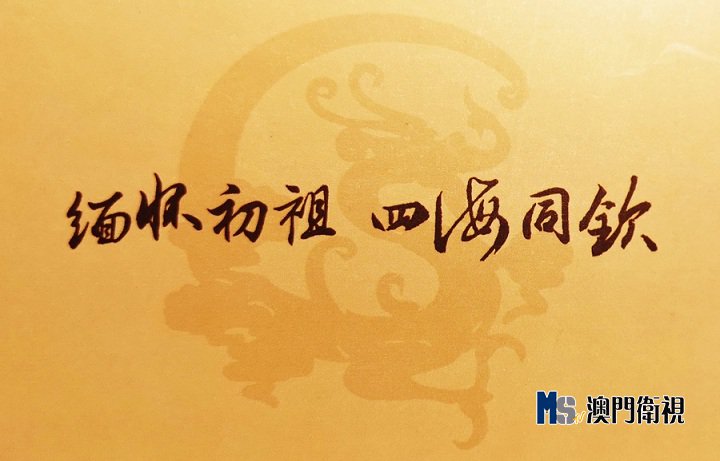 缅怀初祖 四海同钦
MStv 澳門衛視